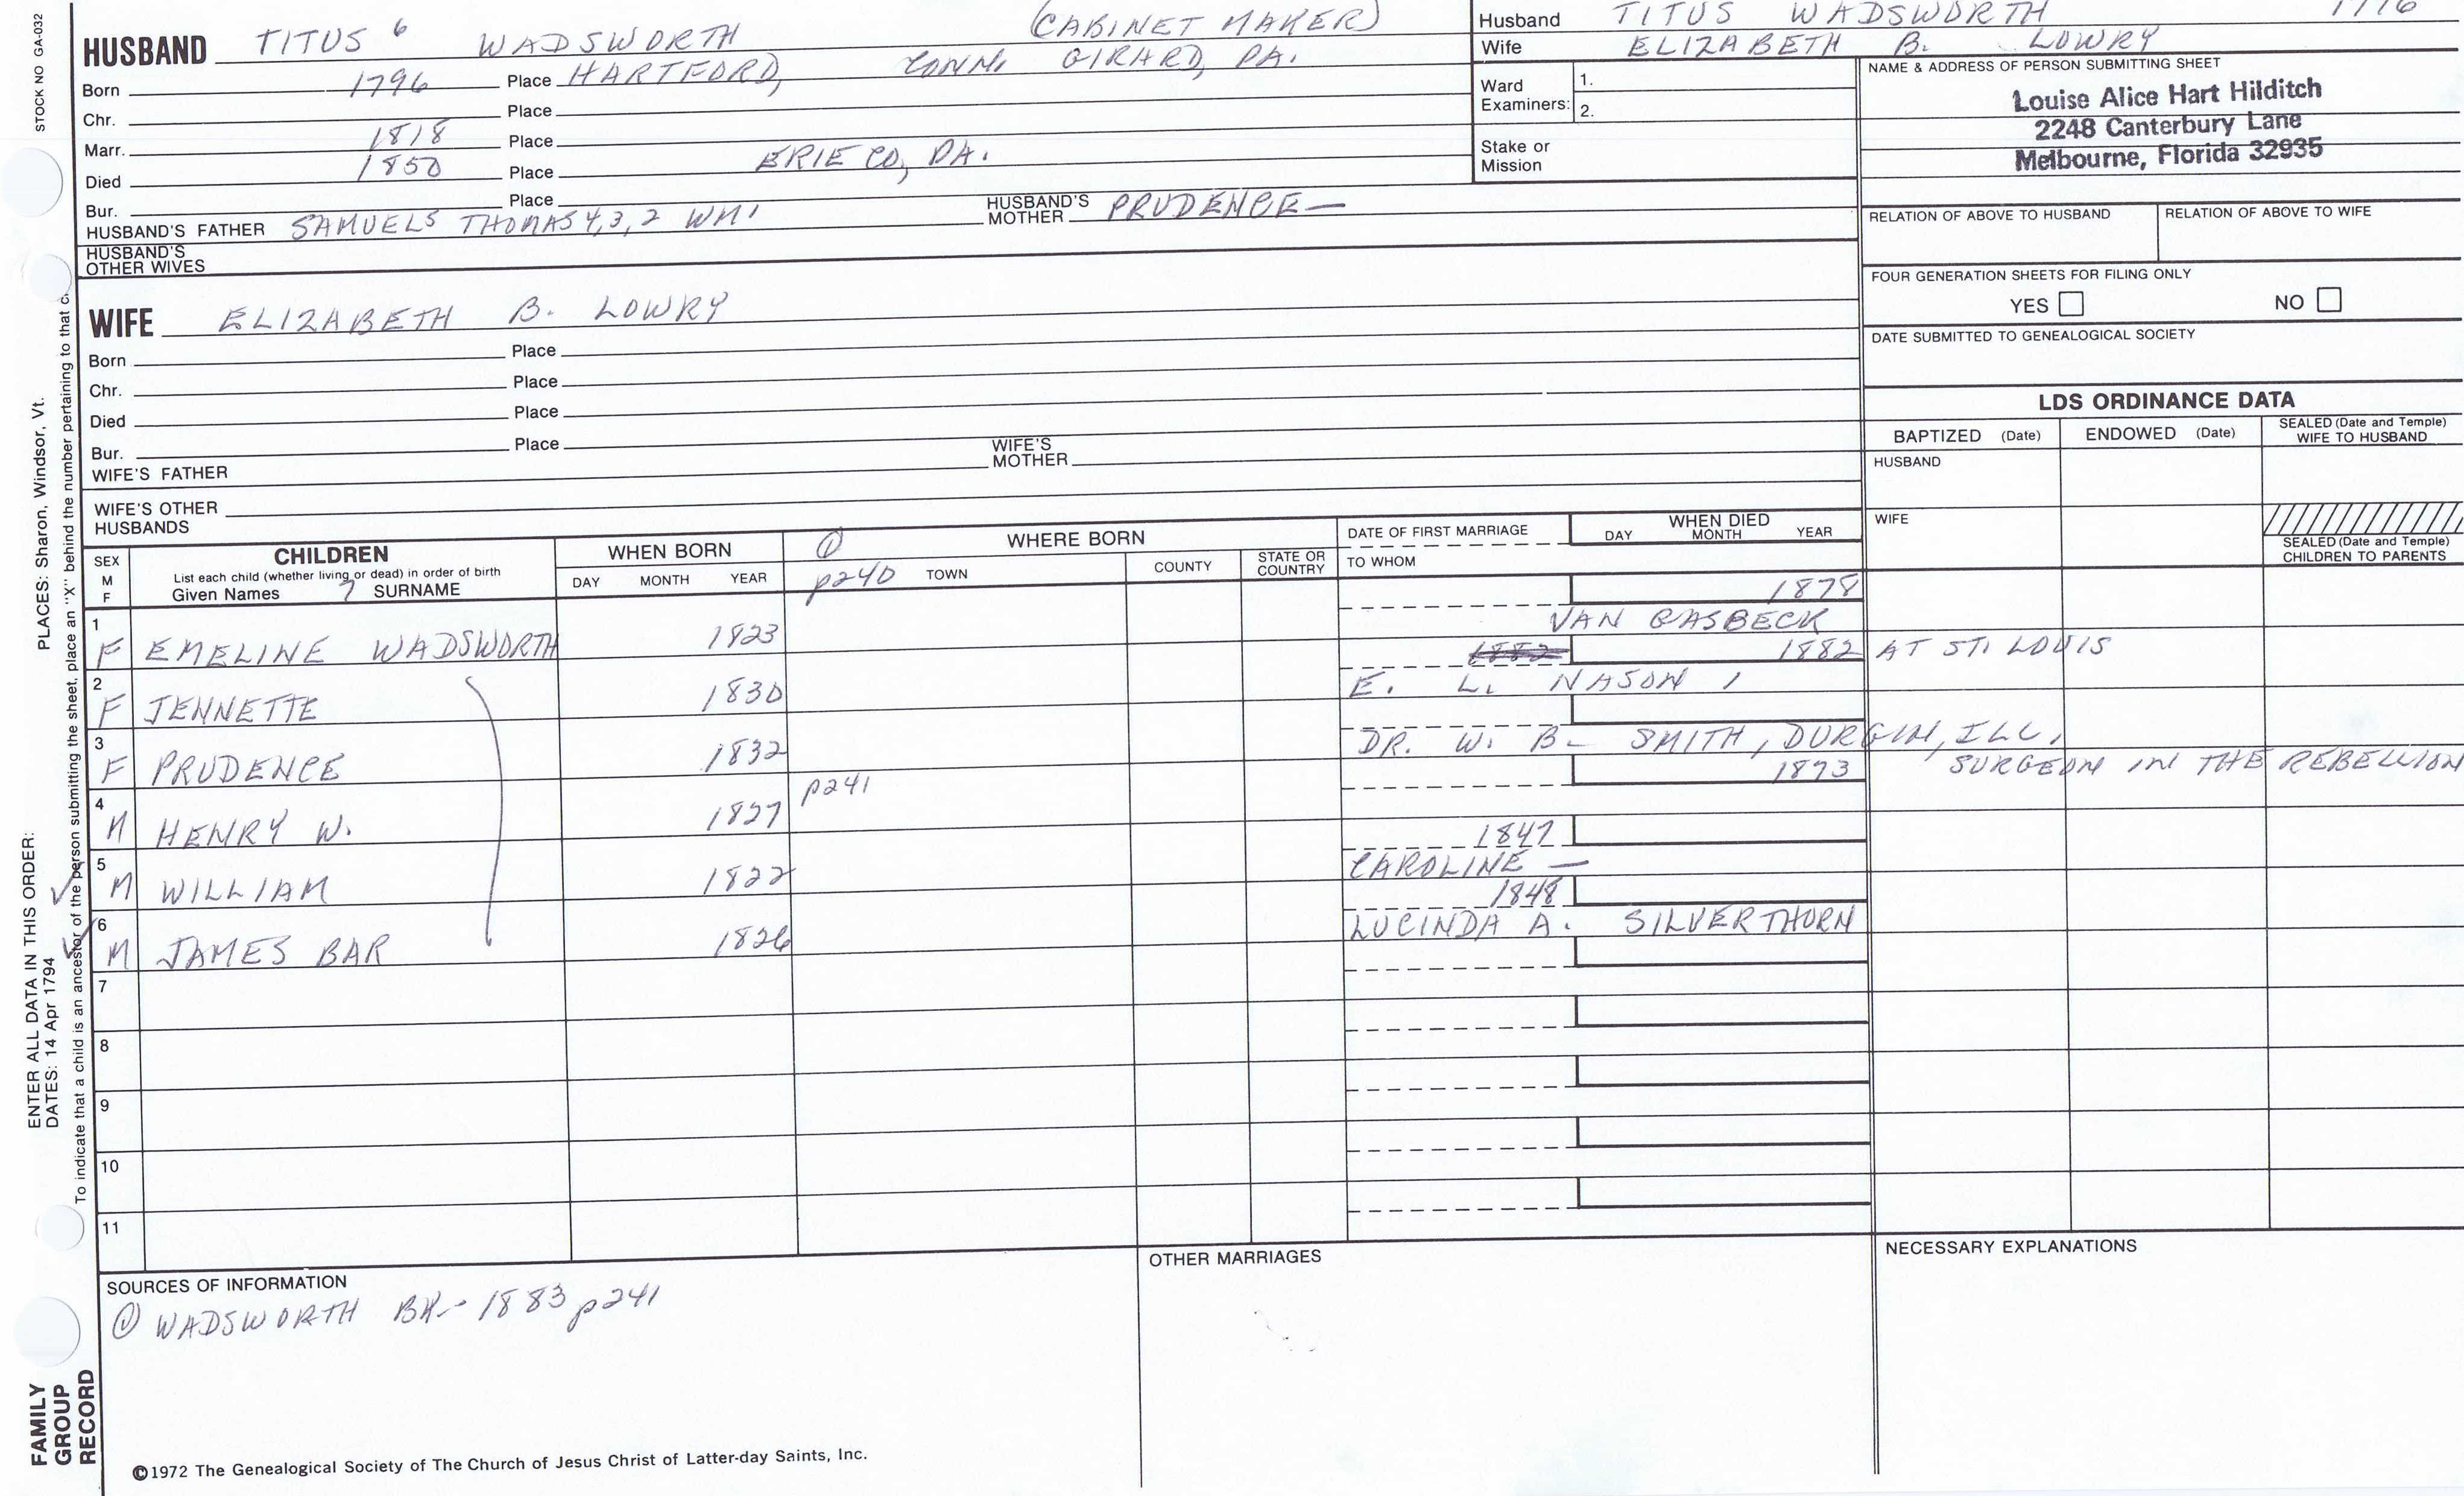 STOCK NO GA-032
HUSBAND TITUS 6 WADSWORTH (CABINET MAKER)
Born 1796 Place HARTFORD, CONN. GIRARD, PA.
Chr. Place
Marr. 1818 Place
Died 1850 Place ERIE CO, PA.
Bur. Place
HUSBAND'S FATHER SAMUEL5 THOMAS 4, 3, 2 WM1 HUSBAND'S MOTHER PRUDENCE—
HUSBAND'S
OTHER WIVES
Husband TITUS WADSWORTH
Wife ELIZABETH B. LOWRY
Ward
Examiners:
1.
2.
Stake or
Mission
NAME & ADDRESS OF PERSON SUBMITTING SHEET
Louise Alice Hart Hilditch
2248 Canterbury Lane
Melbourne, Florida 32935
RELATION OF ABOVE TO HUSBAND RELATION OF ABOVE TO WIFE
FOUR GENERATION SHEETS FOR FILING ONLY
YES NO
DATE SUBMITTED TO GENEALOGICAL SOCIETY
WIFE ELIZABETH B. LOWRY
Born Place
Chr. Place
Died Place
Bur. Place
WIFE'S FATHER WIFE'S MOTHER
WIFE'S OTHER
HUSBANDS
LDS ORDINANCE DATA
BAPTIZED (Date) ENDOWED (Date) SEALED (Date and Temple) WIFE TO HUSBAND
HUSBAND
WIFE
SEALED (Date and Temple)
CHILDREN TO PARENTS
SEX
M
F
CHILDREN
List each child (whether living or dead) in order of birth
Given Names 7 SURNAME
WHEN BORN
DAY MONTH YEAR
① WHERE BORN
p240 TOWN COUNTY STATE OR COUNTRY
DATE OF FIRST MARRIAGE
TO WHOM
WHEN DIED
DAY MONTH YEAR
1 F EMELINE WADSWORTH 1823 1878
VAN GASBECK
2 F JENNETTE 1830 1882 1882 AT ST. LOUIS
E. L. NASON
3 F PRUDENCE 1832
DR. W. B. SMITH, DURGIN, ILL,
SURGEON IN THE REBELLION
4 M HENRY W. 1827 p241 1873
5 M WILLIAM 1822 1847
CAROLINE —
6 M JAMES BAR 1826 1848
LUCINDA A. SILVERTHORN
7
8
9
10
11
SOURCES OF INFORMATION
① WADSWORTH BK- 1883 p241
OTHER MARRIAGES
NECESSARY EXPLANATIONS
©1972 The Genealogical Society of The Church of Jesus Christ of Latter-day Saints, Inc.
ENTER ALL DATA IN THIS ORDER:
DATES: 14 Apr 1794
PLACES: Sharon, Windsor, Vt.
To indicate that a child is an ancestor of the person submitting the sheet, place an "X" behind the number pertaining to that
FAMILY
GROUP
RECORD